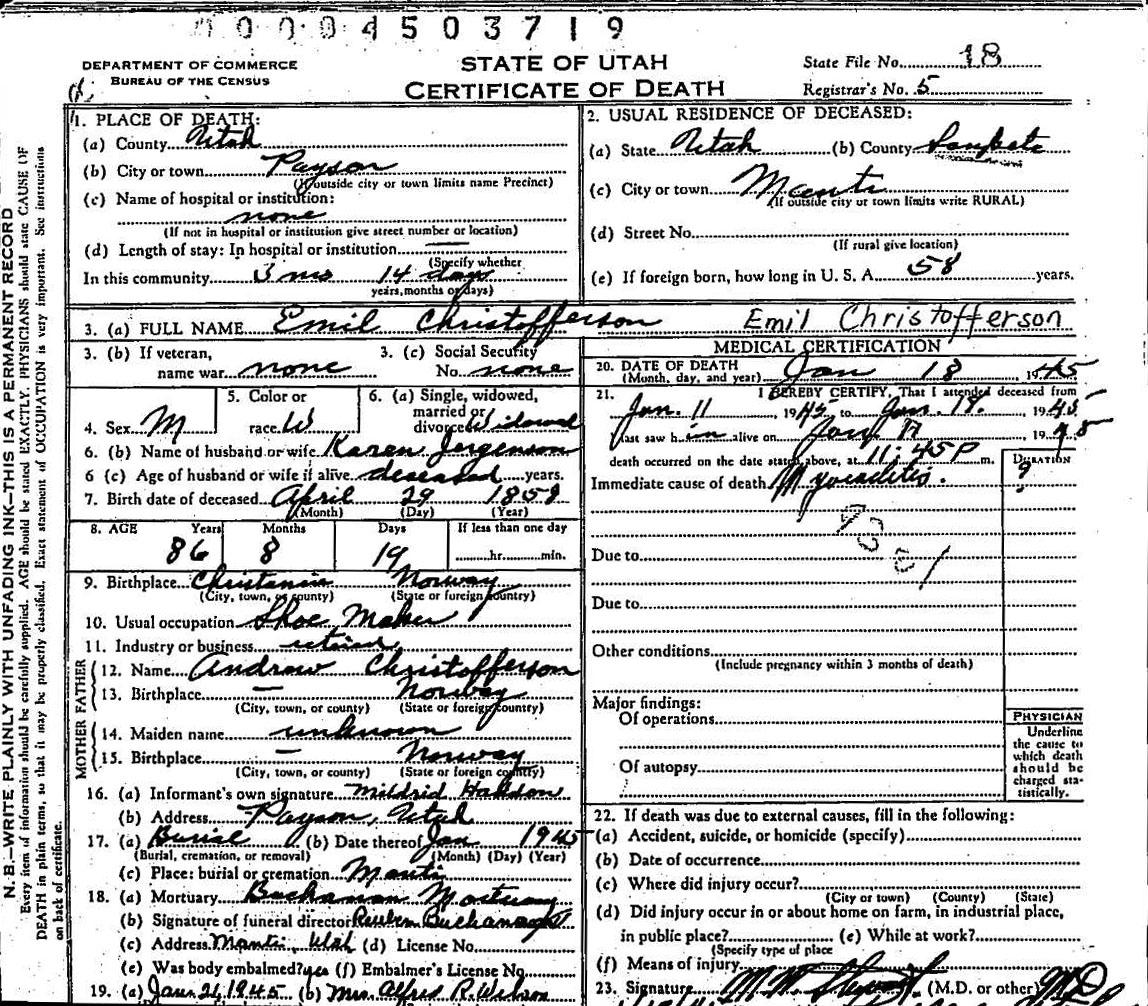 0004503719
DEPARTMENT OF COMMERCE
BUREAU OF THE CENSUS
STATE OF UTAH
CERTIFICATE OF DEATH
State File No. 18
Registrar's No. 5
N. B.—WRITE PLAINLY WITH UNFADING INK—THIS IS A PERMANENT RECORD
Every item of information should be carefully supplied. AGE should be stated EXACTLY. PHYSICIANS should state CAUSE OF
DEATH in plain terms, so that it may be properly classified. Exact statement of OCCUPATION is very important. See instructions
on back of certificate.
1. PLACE OF DEATH:
(a) County Utah
(b) City or town Payson
(If outside city or town limits name Precinct)
(c) Name of hospital or institution:
none
(If not in hospital or institution give street number or location)
(d) Length of stay: In hospital or institution —
(Specify whether
In this community 3 mo 14 days
years, months or days)
2. USUAL RESIDENCE OF DECEASED:
(a) State Utah (b) County Sanpete
(c) City or town Manti
(If outside city or town limits write RURAL)
(d) Street No.
(If rural give location)
(e) If foreign born, how long in U. S. A. 58 years.
3. (a) FULL NAME Emil Christofferson Emil Christofferson
3. (b) If veteran, 3. (c) Social Security
name war none No. none
4. Sex M
5. Color or
race W
6. (a) Single, widowed,
married or
divorced Widowed
6. (b) Name of husband or wife Karen Jorgenson
6 (c) Age of husband or wife if alive deceased years.
7. Birth date of deceased April 29 1858
(Month) (Day) (Year)
8. AGE Years Months Days If less than one day
86 8 19 hr. min.
9. Birthplace Christania Norway
(City, town, or county) (State or foreign country)
10. Usual occupation Shoe Maker
11. Industry or business retired
FATHER
12. Name Andrew Christofferson
13. Birthplace — Norway
(City, town, or county) (State or foreign country)
MOTHER
14. Maiden name unknown
15. Birthplace — Norway
(City, town, or county) (State or foreign country)
16. (a) Informant's own signature Mildrid
(b) Address Payson, Utah
17. (a) Burial (b) Date thereof Jan 1945
(Burial, cremation, or removal) (Month) (Day) (Year)
(c) Place: burial or cremation Manti
18. (a) Mortuary Buchanan Mortuary
(b) Signature of funeral director Reuben Buchanan
(c) Address Manti, Utah (d) License No.
(e) Was body embalmed? yes (f) Embalmer's License No.
19. (a) Jan. 21, 1945 (b) Mrs. Alfred R. Wilson
MEDICAL CERTIFICATION
20. DATE OF DEATH
(Month, day, and year) Jan 18 1945
21. I HEREBY CERTIFY, That I attended deceased from
Jan. 11 1945 to Jan. 1945
last saw him alive on Jan 17 1945
death occurred on the date stated above, at 11:45 P m.
DURATION
Immediate cause of death Myocarditis. ?
93
Due to
Due to
Other conditions
(Include pregnancy within 3 months of death)
Major findings:
Of operations
Of autopsy
PHYSICIAN
Underline
the cause to
which death
should be
charged sta-
tistically.
22. If death was due to external causes, fill in the following:
(a) Accident, suicide, or homicide (specify)
(b) Date of occurrence
(c) Where did injury occur?
(City or town) (County) (State)
(d) Did injury occur in or about home on farm, in industrial place,
in public place? (e) While at work?
(Specify type of place
(f) Means of injury
23. Signature (M.D. or other) MD